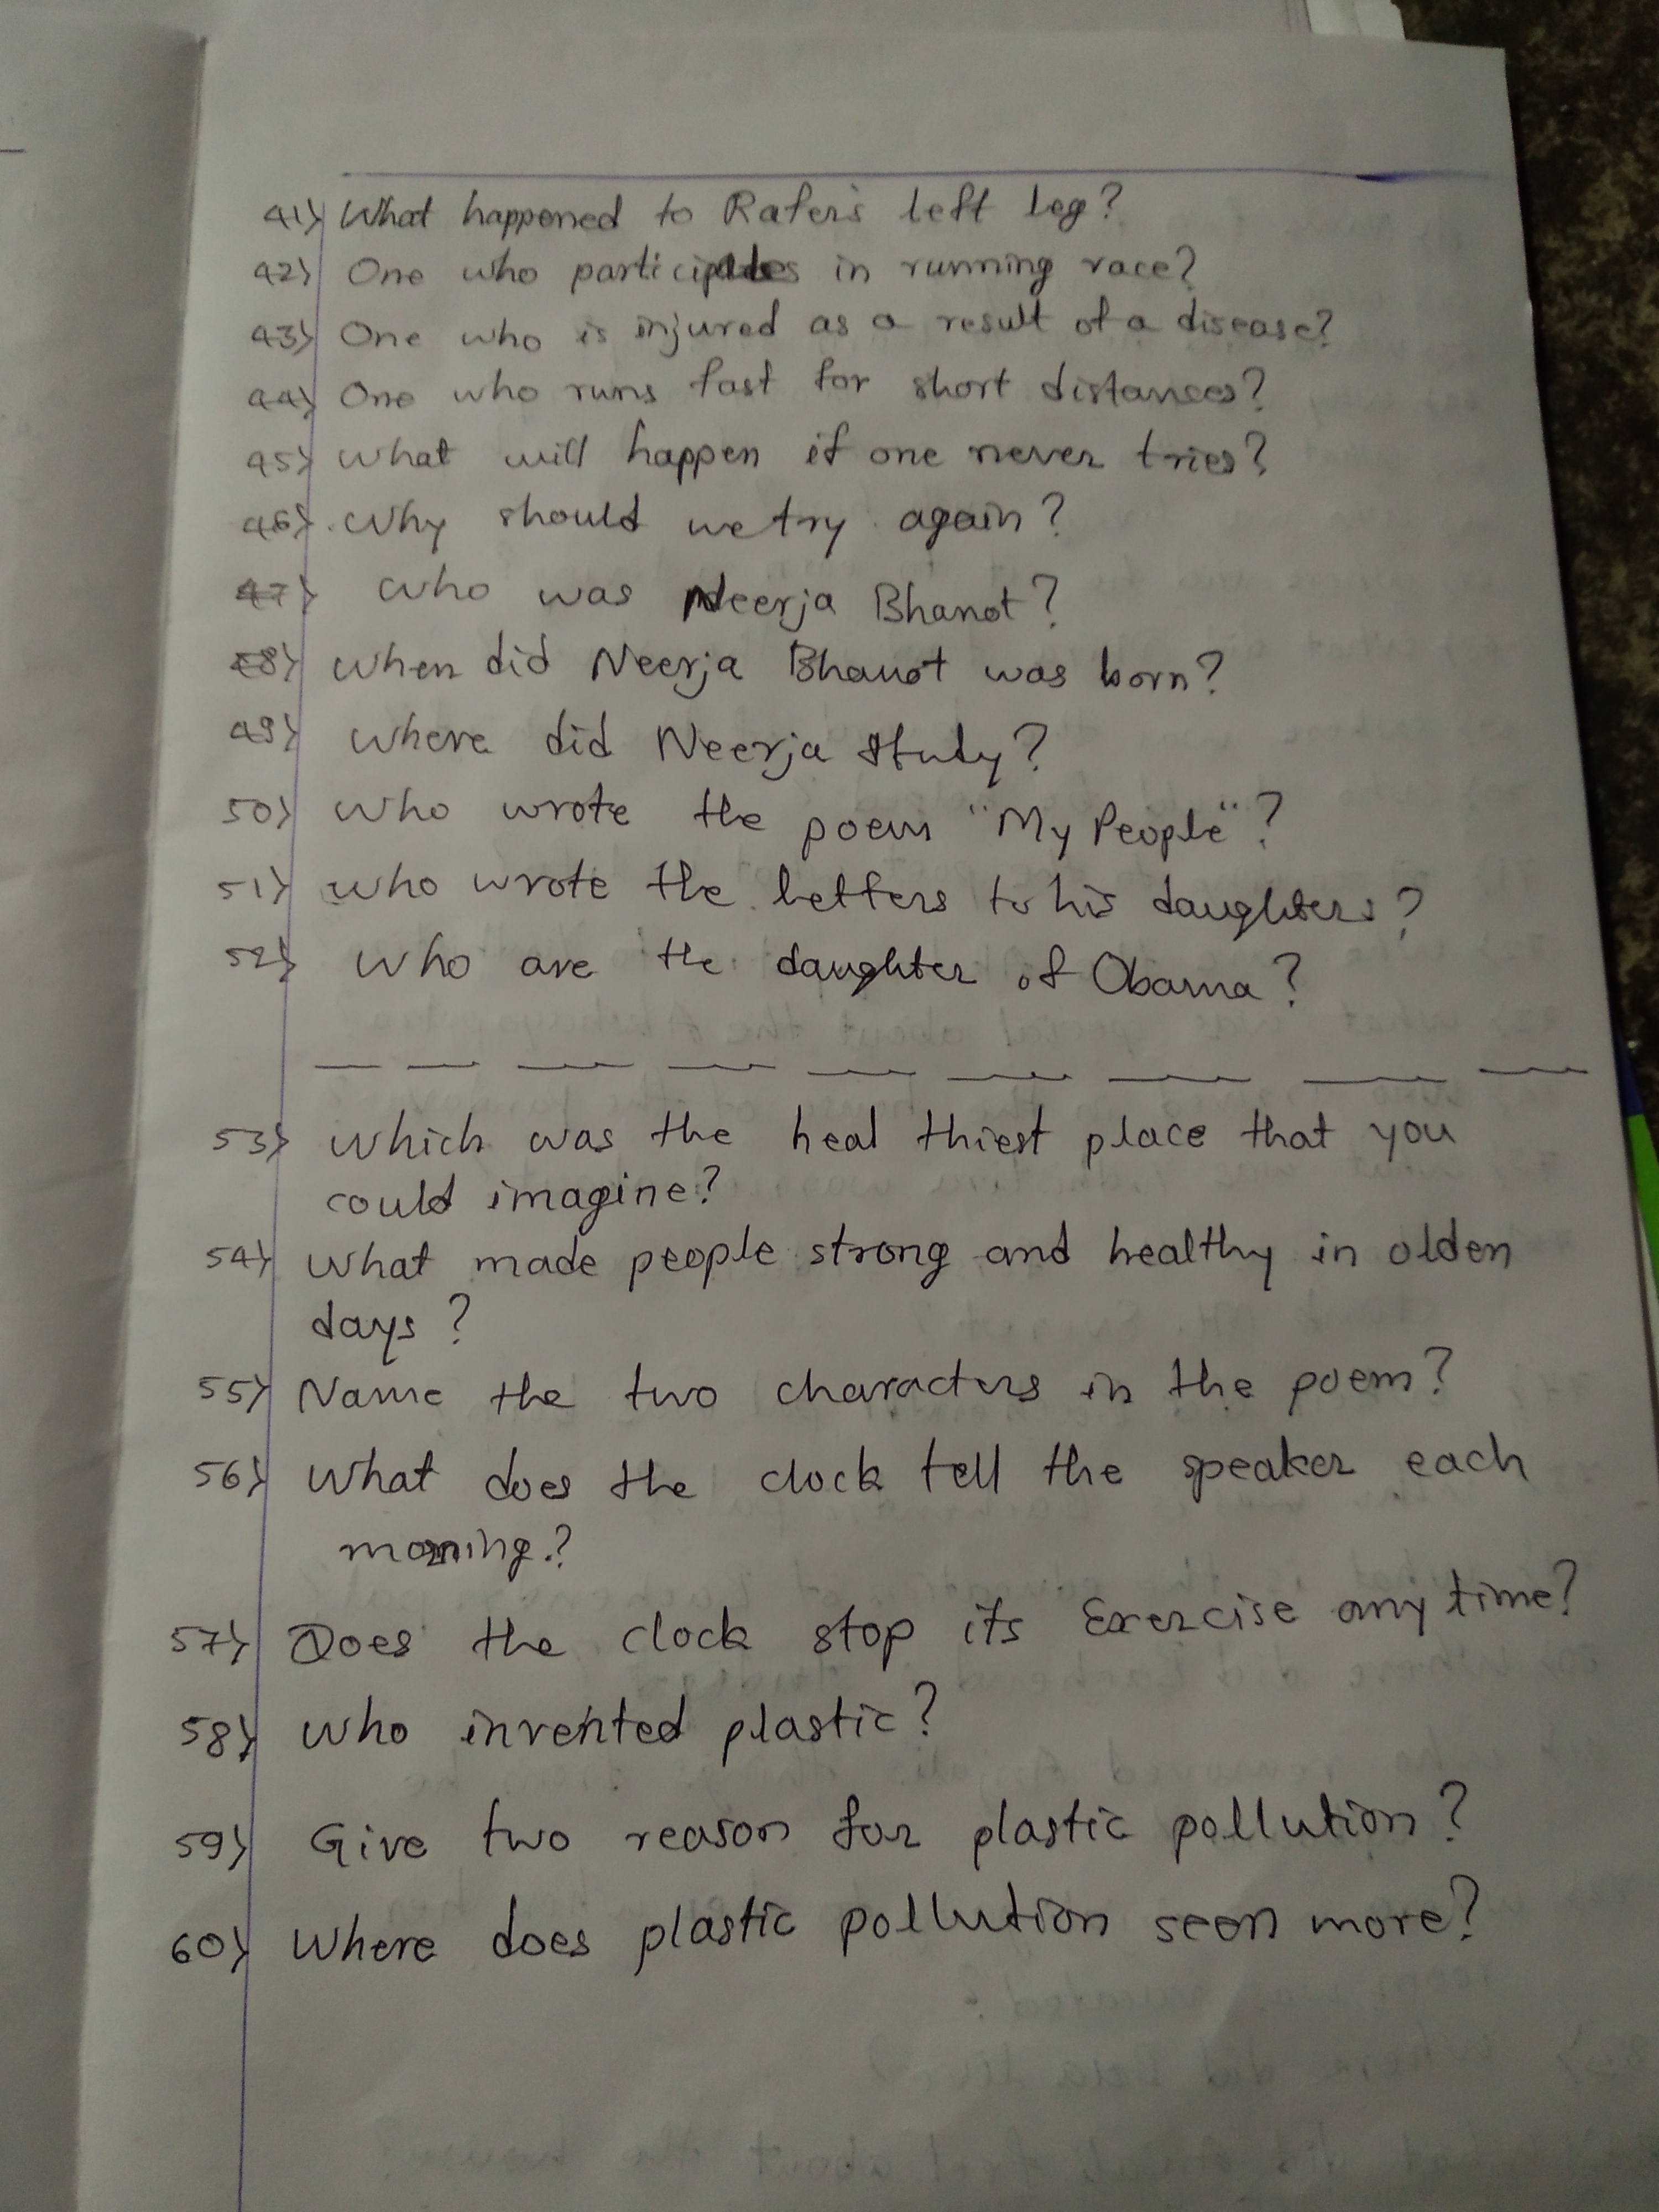 41) What happened to Rafer's left leg?
42) One who participates in running race?
43) One who is injured as a result of a disease?
44) One who runs fast for short distances?
45) What will happen if one never tries?
46) Why should we try again?
47) Who was Neerja Bhanot?
48) When did Neerja Bhanot was born?
49) Where did Neerja Study?
50) Who wrote the poem "My People"?
51) Who wrote the letters to his daughters?
52) Who are the daughter of Obama?
53) Which was the heal thiest place that you
could imagine?
54) What made people strong and healthy in olden
days?
55) Name the two characters in the poem?
56) What does the clock tell the speaker each
morning.?
57) Does the clock stop its Exercise any time?
58) Who invented plastic?
59) Give two reason for plastic pollution?
60) Where does plastic pollution seen more?